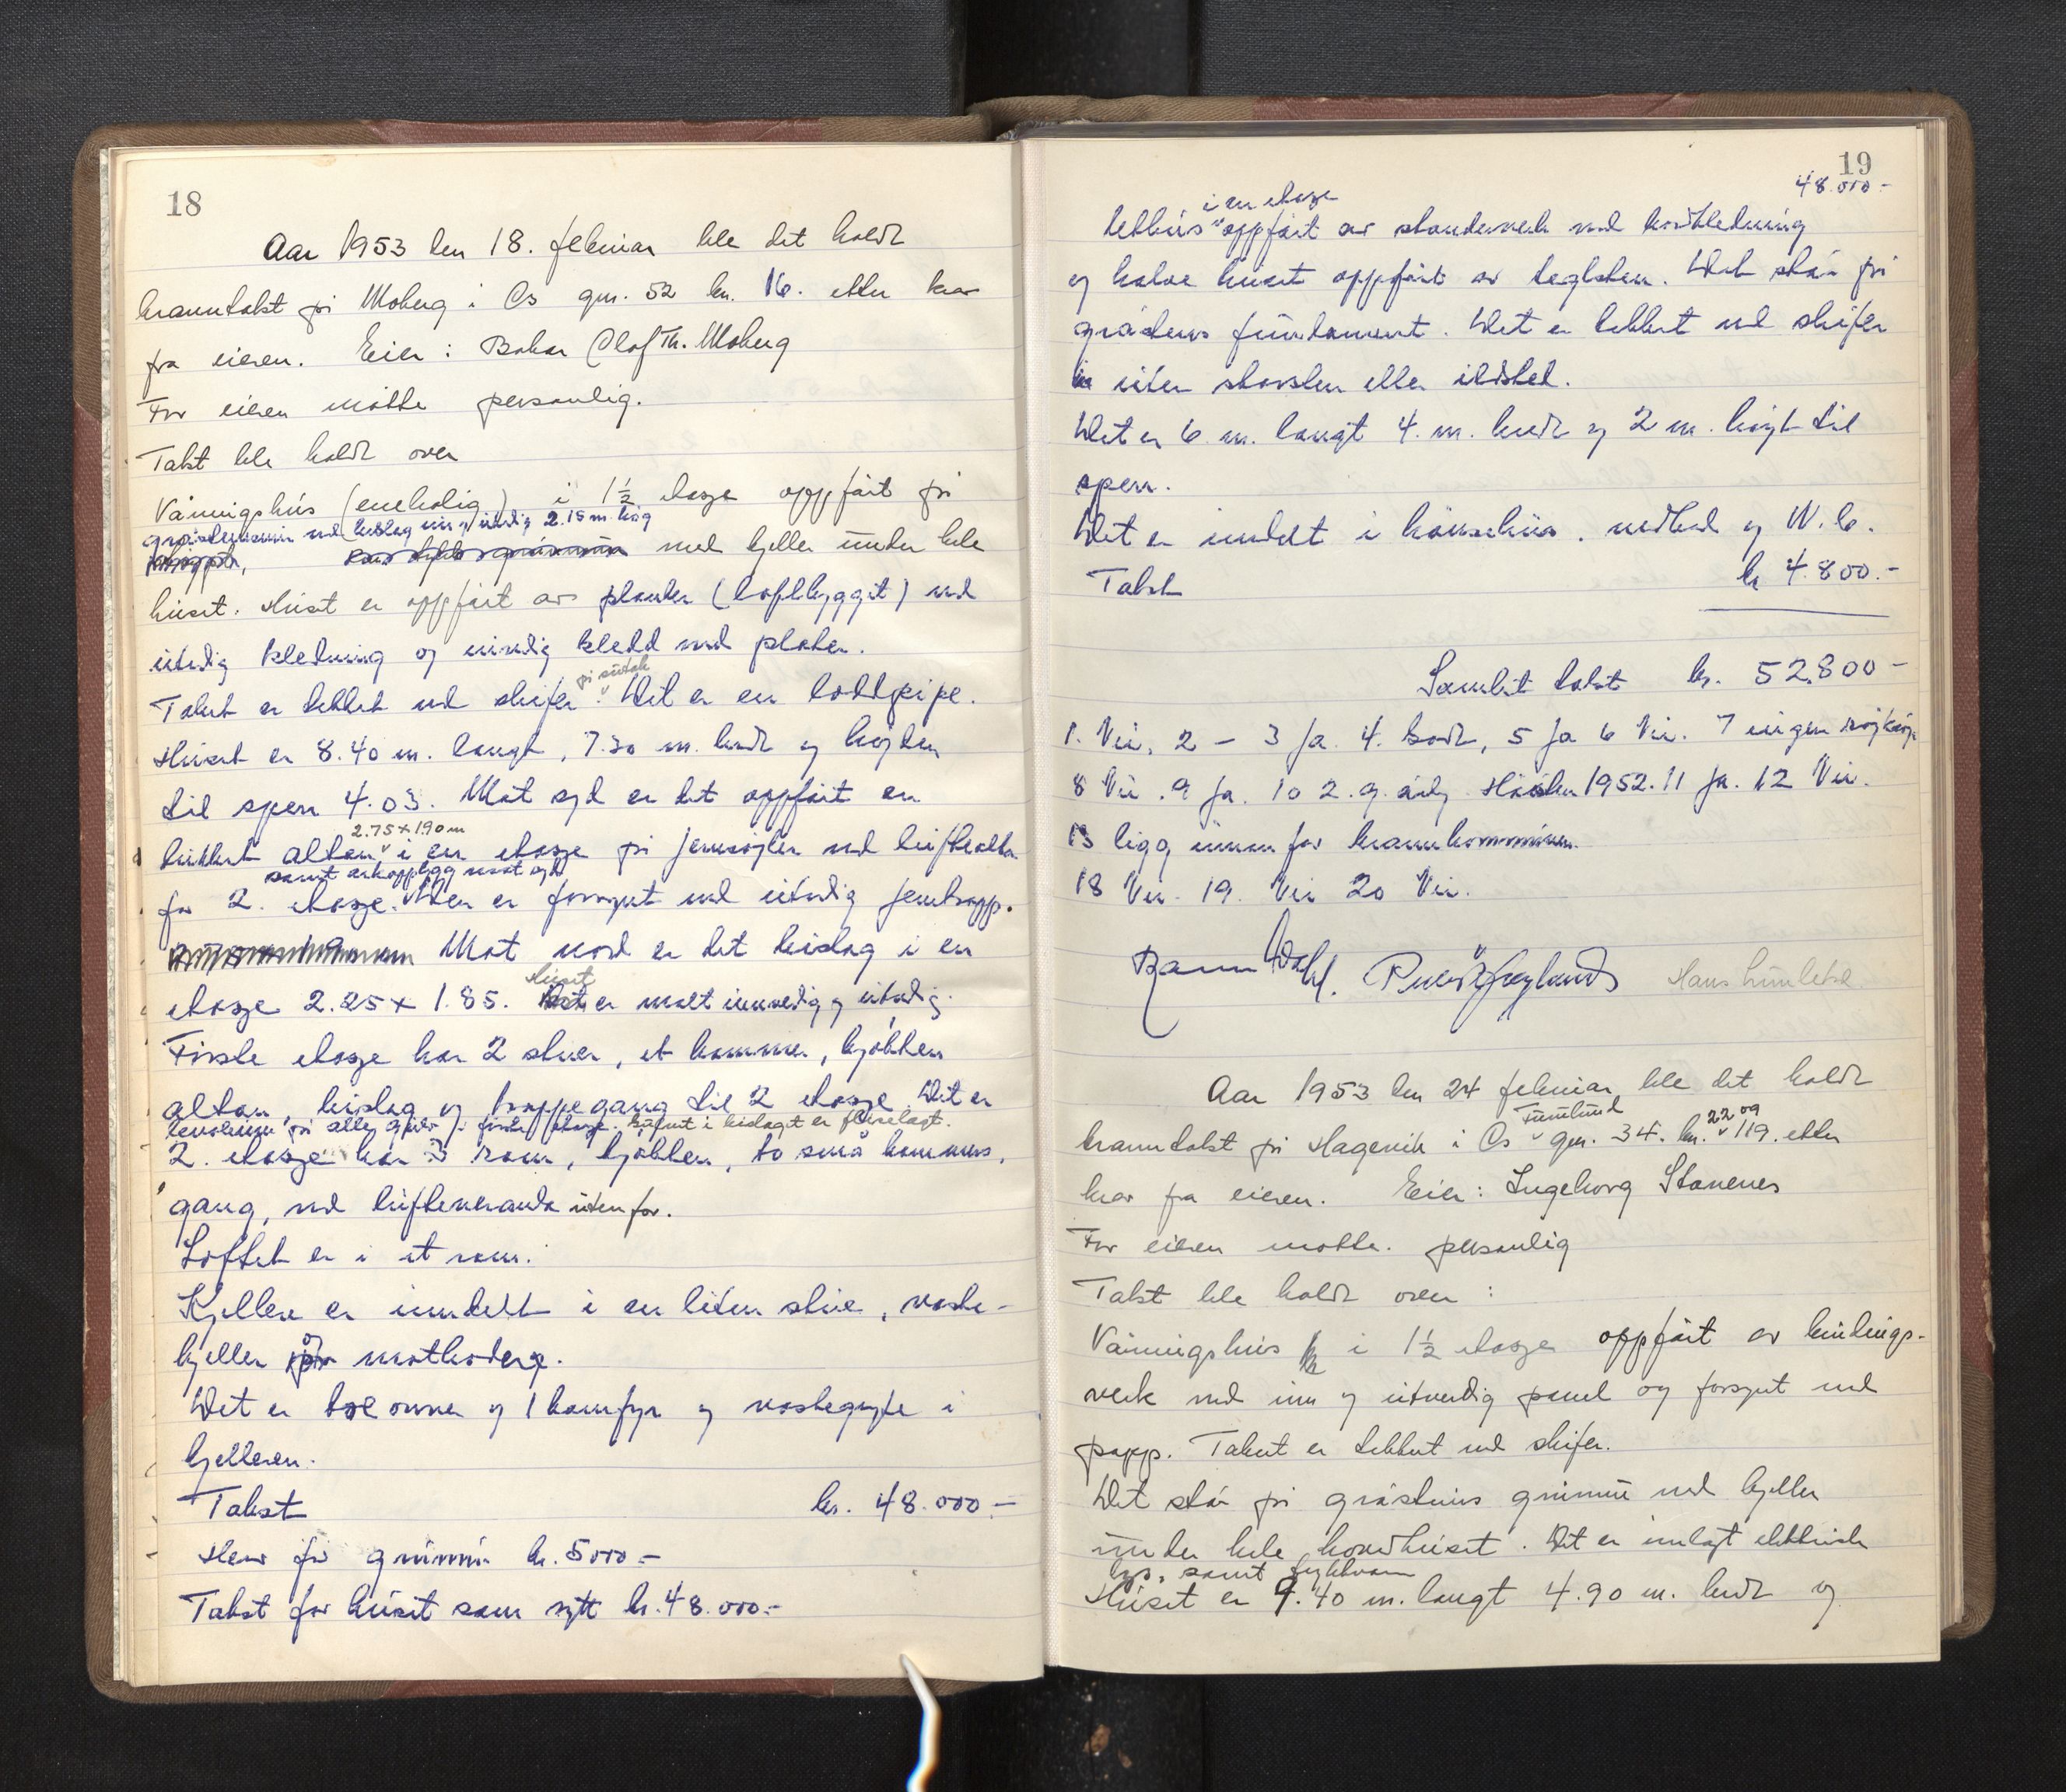 18
Aar 1953 den 18. februar ble det holdt
branntakst på Moberg i Os gnr. 52 bn. 16. etter krav
fra eieren. Eier: Baker Olaf Th. Moberg
For eieren møtte personlig.
Takst ble holdt over
Våningshus (enebolig) i 1½ etasje oppført på
gråstensmur med inn og utvendig 2.15 m. høg
med kjeller under hele
huset. Huset er oppført av planker (loftbygget) med
utvendig kledning og innvendig kledd med plater.
på sutak
Taket er tekket med skifer. Det er en teglpipe.
Huset er 8.40 m. langt, 7.30 m. bredt og høyden
til sperr 4.03. Mot syd er det oppført en
2.75 x 1.90 m
lukket altan i en etasje på jernsøyler med luftealtan
samt arkopplegg mot syd
for 2. etasje. Den er forsynt med utvendig jerntrapp.
Mot nord er det bislag i en
Huset
etasje 2.25 x 1.85. er malt innvendig og utvendig.
Første etasje har 2 stuer, et kammer, kjøkken
altan, bislag og trappegang til 2 etasje. Det er
på alle gulv i første etasje. Gulvet i bislaget er flirelagt.
2. etasje har 3 rom, kjøkken, to små kammers,
gang, med lufteveranda utenfor.
Loftet er i et rom.
Kjelleren er inndelt i en liten stue, vaske-
kjeller og matboderg.
Det er tre ovner og 1 komfyr og vaskegryte i
kjelleren.
Takst kr. 48.000.-
Herav for grunnmur kr. 5000.-
Takst for huset som nytt kr. 48.000.-
19
48.000.-
i en etasje
Uthus oppført av stenderverk med bordkledning
og halve huset oppført av teglsten. Det står på
gråstens fundament. Det er tekket med skifer
uten skorsten eller ildsted.
Det er 6 m. langt 4. m. bredt og 2 m. høyt til
sperr.
Det er inndelt i hønsehus, vedbod og W.C.
Takst kr 4.800.-
Samlet takst kr. 52.800.-
1. Nei, 2 - 3 Ja. 4. Godt, 5 Ja 6 Nei. 7 ingen
8 Nei. 9 Ja. 10 2. g. årlig Høsten 1952. 11 Ja. 12 Nei.
13 ligg innenfor brannkommunen.
18 Nei. 19. Nei 20 Nei.
Hans Lunletræ
Aar 1953 den 24 februar ble det holdt
22 og
branntakst på Hagevik i Os gnr. 34. bn. 119. etter
krav fra eieren. Eier: Ingeborg Stanenes
For eieren møtte. personlig
Takst ble holdt over:
Våningshus i 1½ etasje oppført av bindings-
verk med inn og utvendig panel og forsynt med
papp. Taket er tekket med skifer.
Det står på gråstens grunnmur med kjeller
under hele hovedhuset. Det er innlagt elektrisk
lys, samt trykkvann
Huset er 9.40 m. langt 4.90 m. bredt og